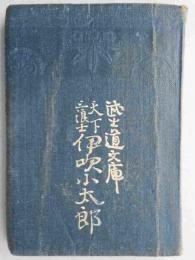 武士道文庫
天下三浪士
伊吹小太郎